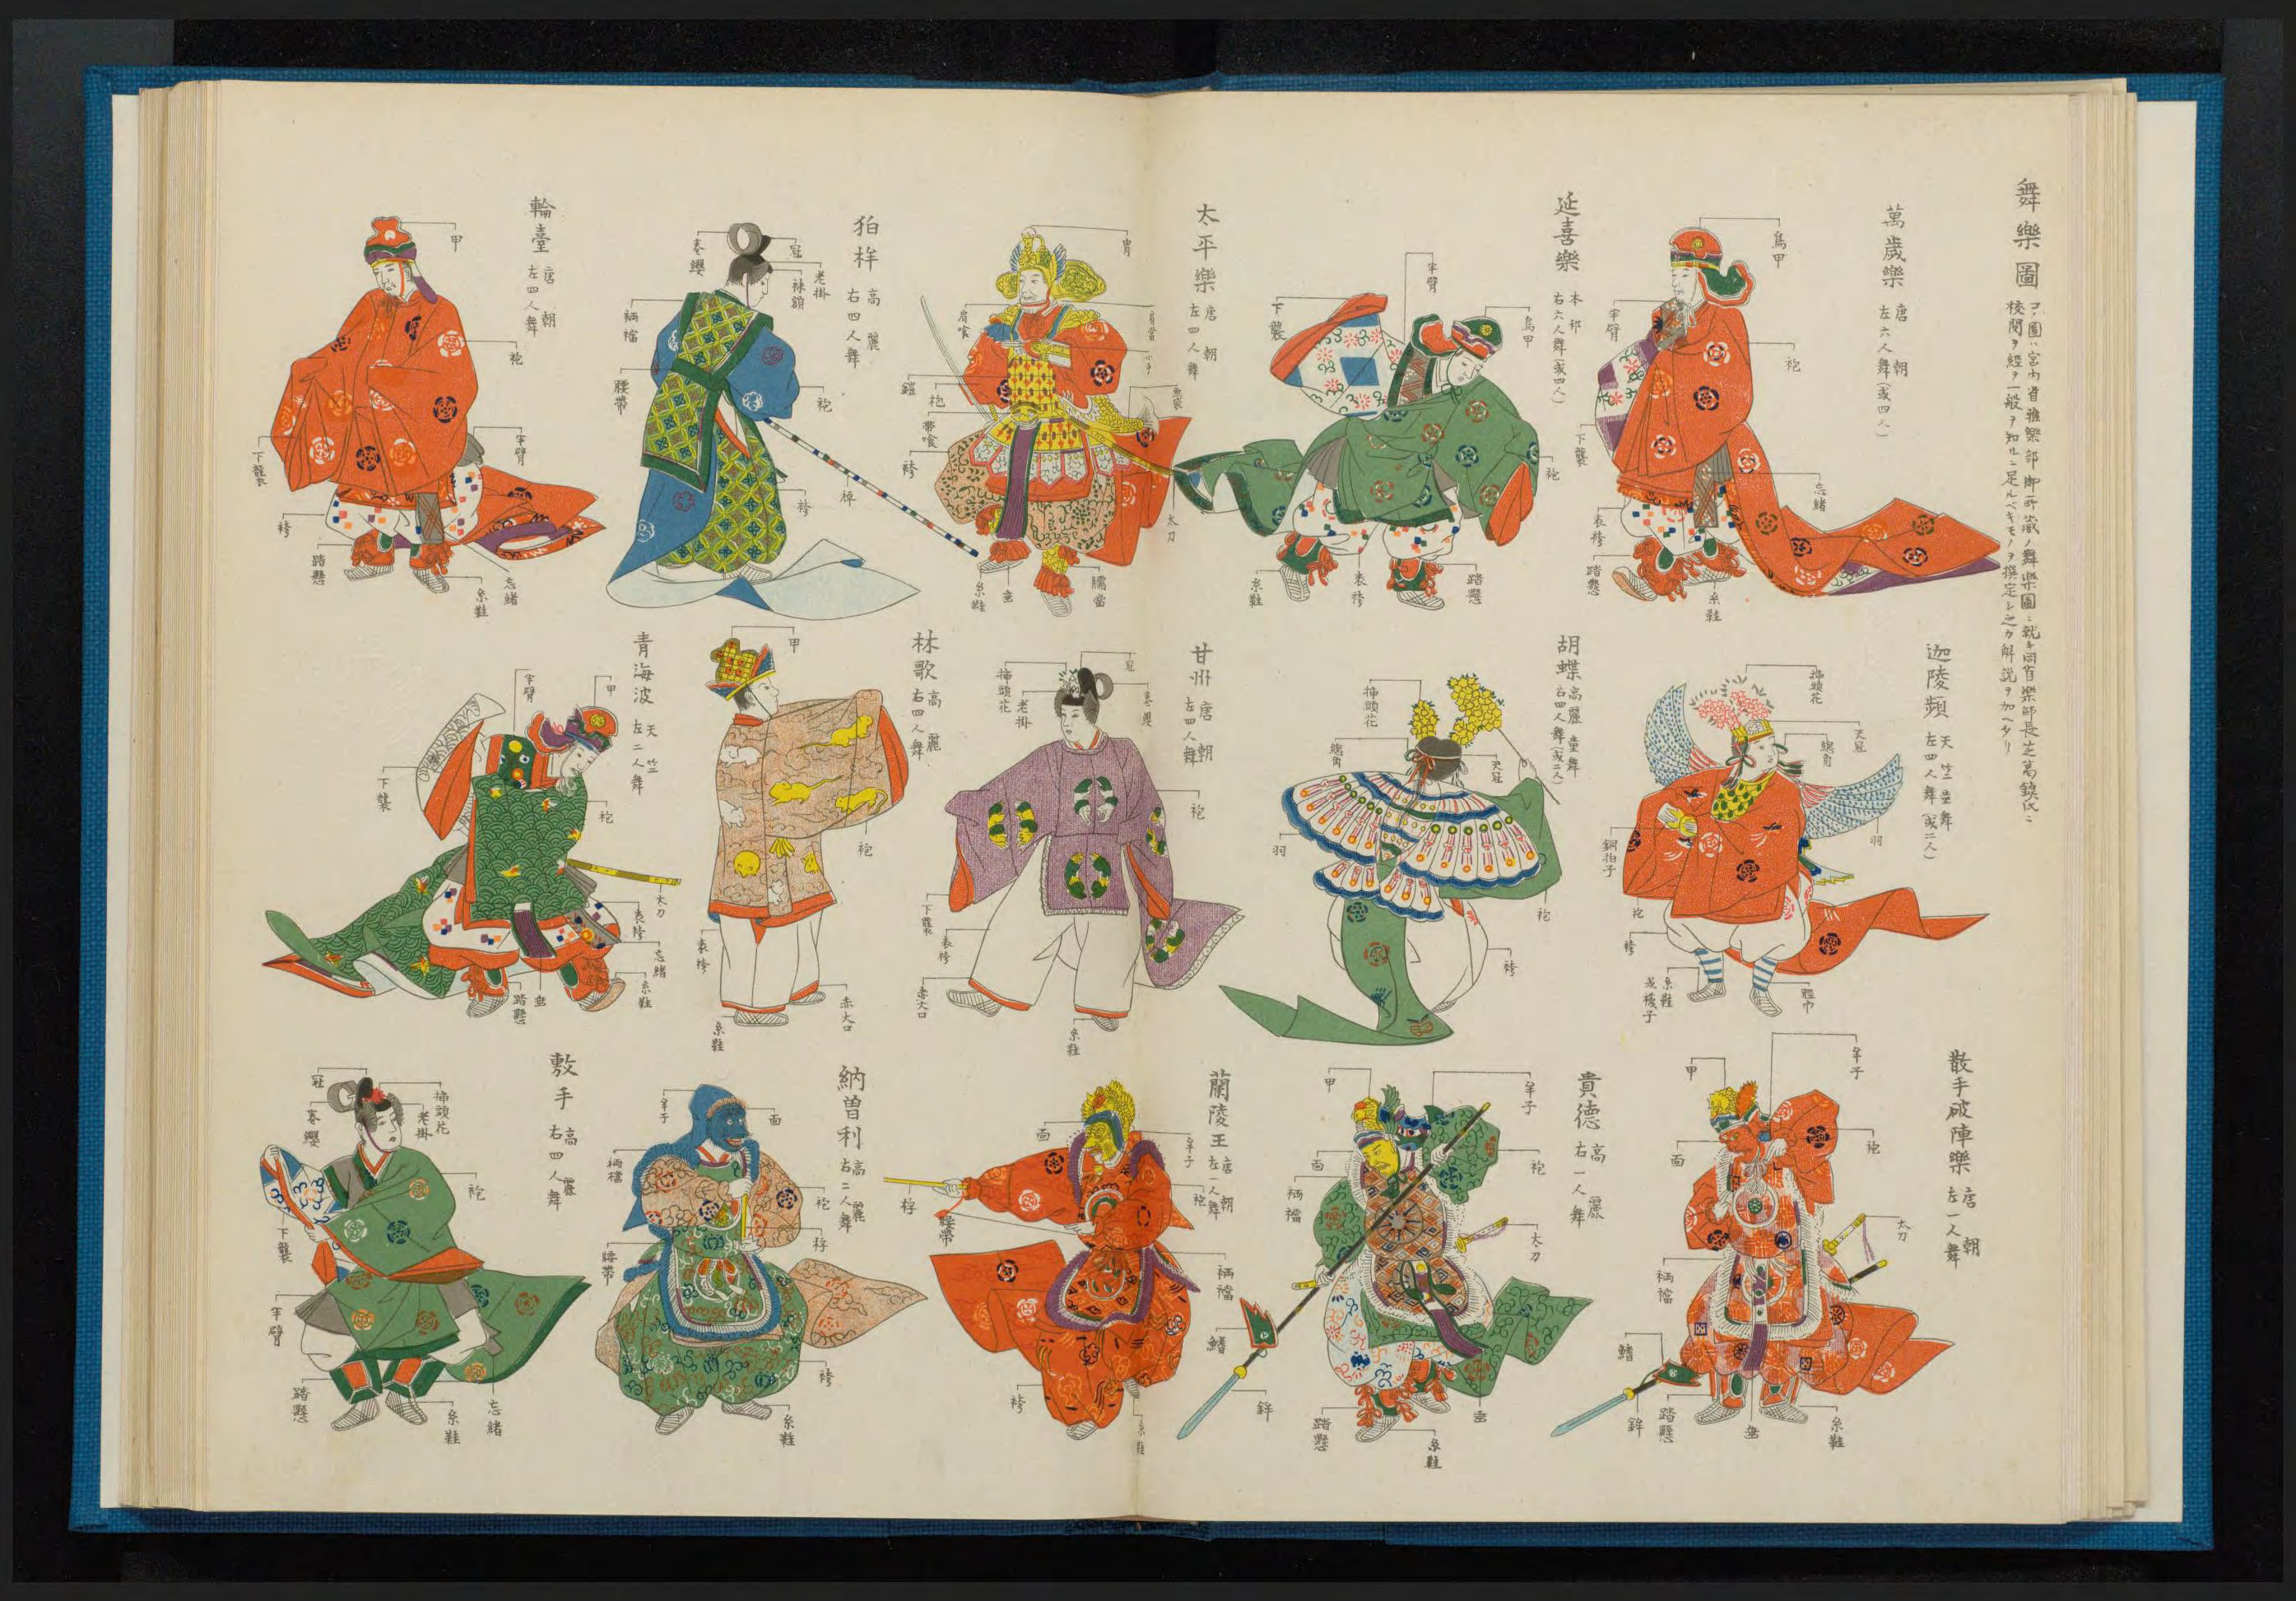 舞樂圖
コノ圖ハ宮内省雅樂部御所藏ノ舞樂圖ニ就キ同省樂師長芝葛鎮氏ニ
校閲ヲ經テ一般ヲ知ルニ足ルベキモノヲ撰定シ之カ解説ヲ加ヘタリ
萬歲樂
唐朝
左六人舞(或四人)
烏甲
半臂
袍
下襲
忘緒
表袴
踏懸
糸鞋
延喜樂
本邦
右六人舞(或四人)
半臂
下襲
烏甲
袍
糸鞋
表袴
踏懸
太平樂
唐朝
左四人舞
冑
肩喰
肩當
鎧
袍
帶喰
袴
太刀
糸鞋
垂
臑當
狛桙
高麗
右四人舞
冠
老掛
末額
卷纓
裲襠
腰帶
袍
袴
棹
輪臺
唐朝
左四人舞
甲
袍
半臂
下襲
袴
踏懸
糸鞋
忘緒
迦陵頻
天竺童舞
左四人舞(或二人)
挿頭花
天冠
總角
羽
銅拍子
袍
袴
糸鞋
或襪子
脛巾
胡蝶
高麗童舞
右四人舞(或二人)
挿頭花
總角
天冠
羽
袍
袴
甘州
唐朝
左四人舞
冠
挿頭花
老掛
卷纓
袍
下襲
表袴
赤大口
糸鞋
林歌
高麗
右四人舞
甲
袍
表袴
赤大口
糸鞋
青海波
天竺
左二人舞
半臂
甲
下襲
袍
太刀
表袴
忘緒
糸鞋
踏懸
垂
散手破陣樂
唐朝
左一人舞
牟子
甲
袍
面
太刀
裲襠
鰭
鉾
踏懸
垂
糸鞋
貴德
高麗
右一人舞
甲
牟子
面
袍
裲襠
太刀
鰭
鉾
踏懸
糸鞋
垂
蘭陵王
唐朝
左一人舞
面
牟子
袍
桴
腰帶
裲襠
袴
糸鞋
納曽利
高麗
右二人舞
牟子
面
裲襠
袍
桴
腰帶
袴
糸鞋
敷手
高麗
右四人舞
冠
挿頭花
卷纓
老掛
袍
下襲
半臂
踏懸
糸鞋
忘緒